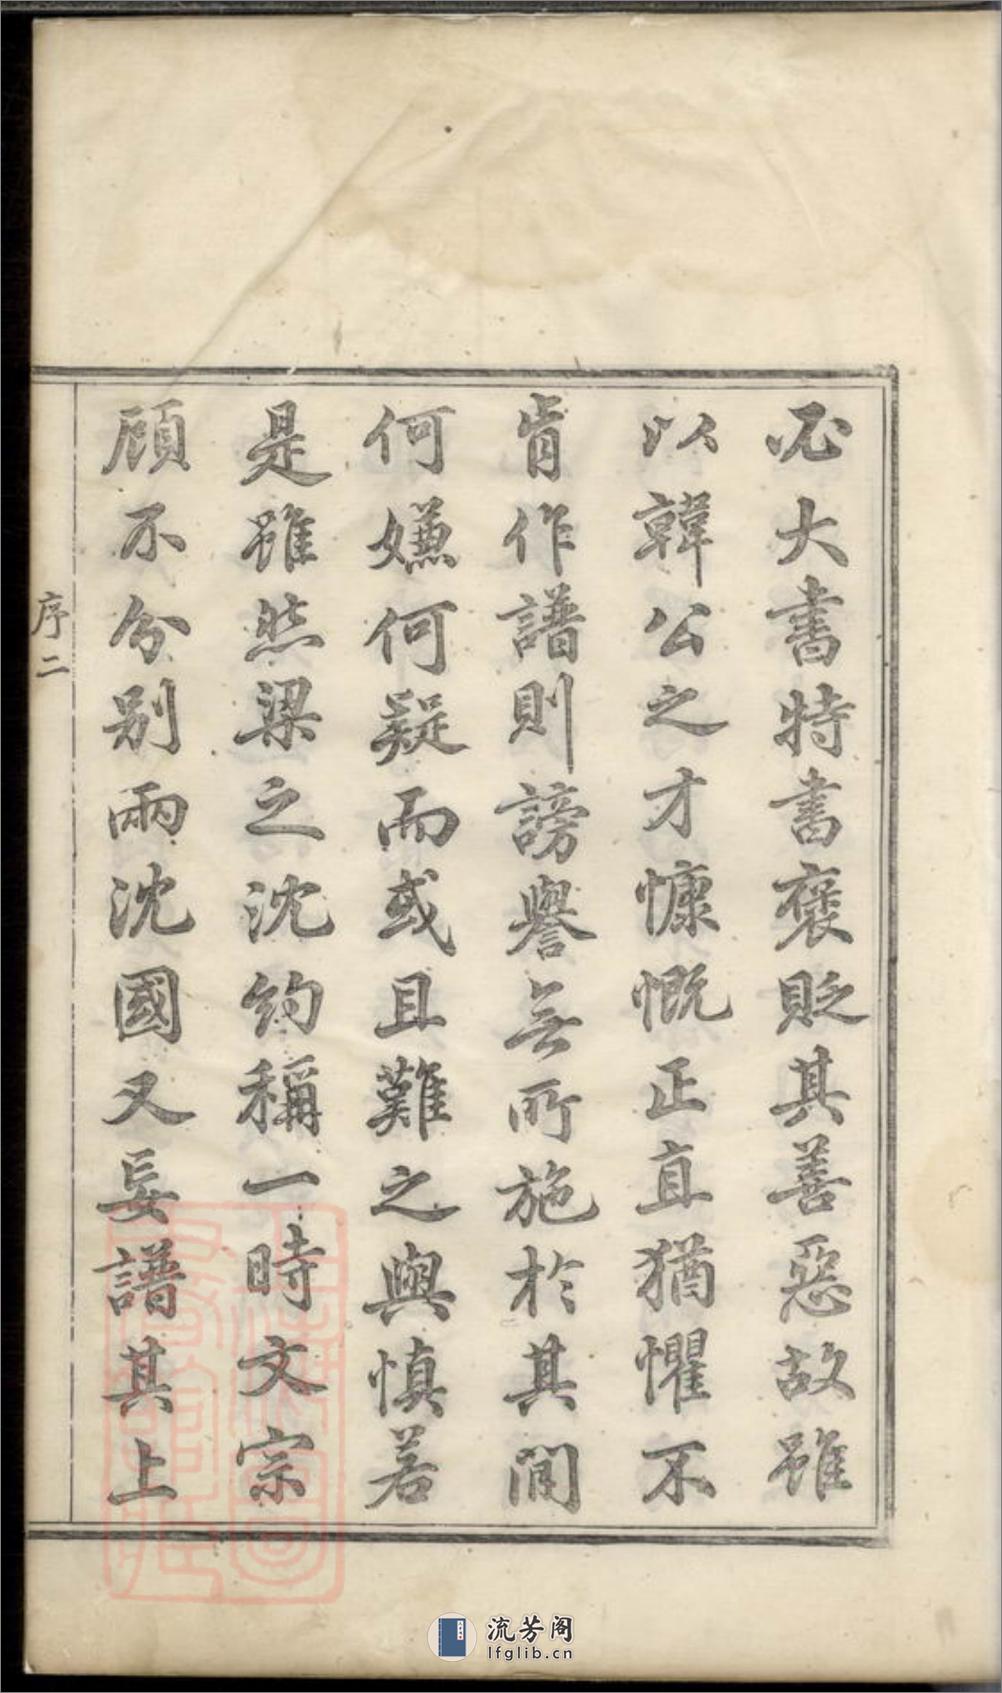 必大書特書褒貶其善惡故雖
以韓公之才慷慨正直猶懼不
肯作譜則謗譽無所施於其間
何嫌何疑而或且難之與慎若
是雖然梁之沈約稱一時文宗
顧不分別兩沈國又妄譜其上
序二
流芳阁
lfglib.cn